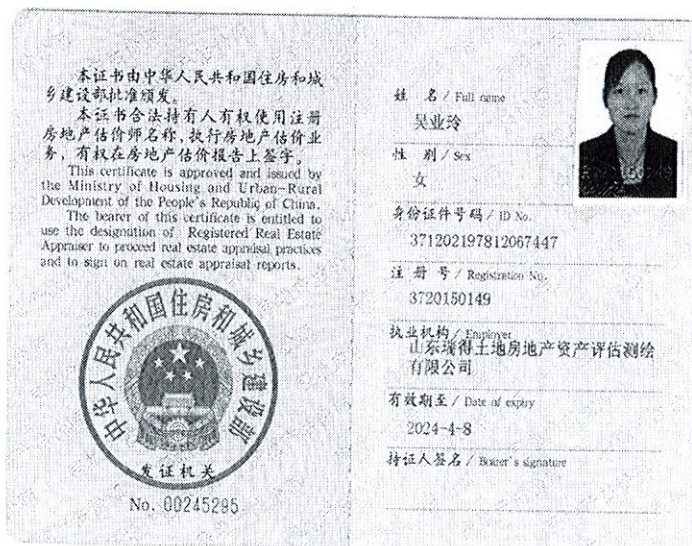 本证书由中华人民共和国住房和城
乡建设部批准颁发。
本证书合法持有人有权使用注册
房地产估价师名称，执行房地产估价业
务，有权在房地产估价报告上签字。
This certificate is approved and issued by
the Ministry of Housing and Urban-Rural
Development of the People's Republic of China.
The bearer of this certificate is entitled to
use the designation of Registered Real Estate
Appraiser to proceed real estate appraisal practices
and to sign on real estate appraisal reports.
中华人民共和国住房和城乡建设部
发证机关
No. 00245295
姓 名 / Full name
吴业玲
性 别 / Sex
女
身份证件号码 / ID No.
371202197812067447
注 册 号 / Registration No.
3720150149
执业机构 / Employer
山东瑞得土地房地产资产评估测绘
有限公司
有效期至 / Date of expiry
2024-4-8
持证人签名 / Bearer's signature